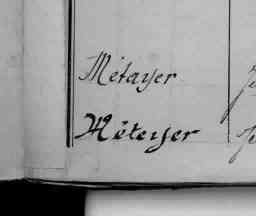 Métayer
Méteyer